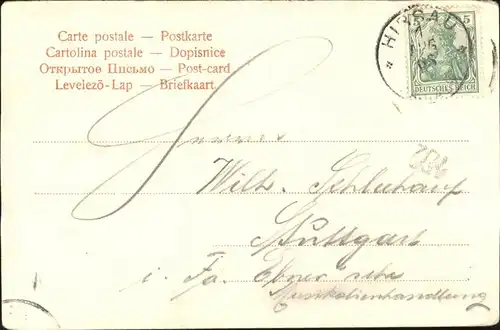 Carte postale — Postkarte
Cartolina postale — Dopisnice
Открытое Письмо — Post-card
Levelező-Lap — Briefkaart.
HIRSAU
5
DEUTSCHES REICH
Wilh. Schlehauf
Stuttgart
i. Fa. Ebner
Musikalienhandlung